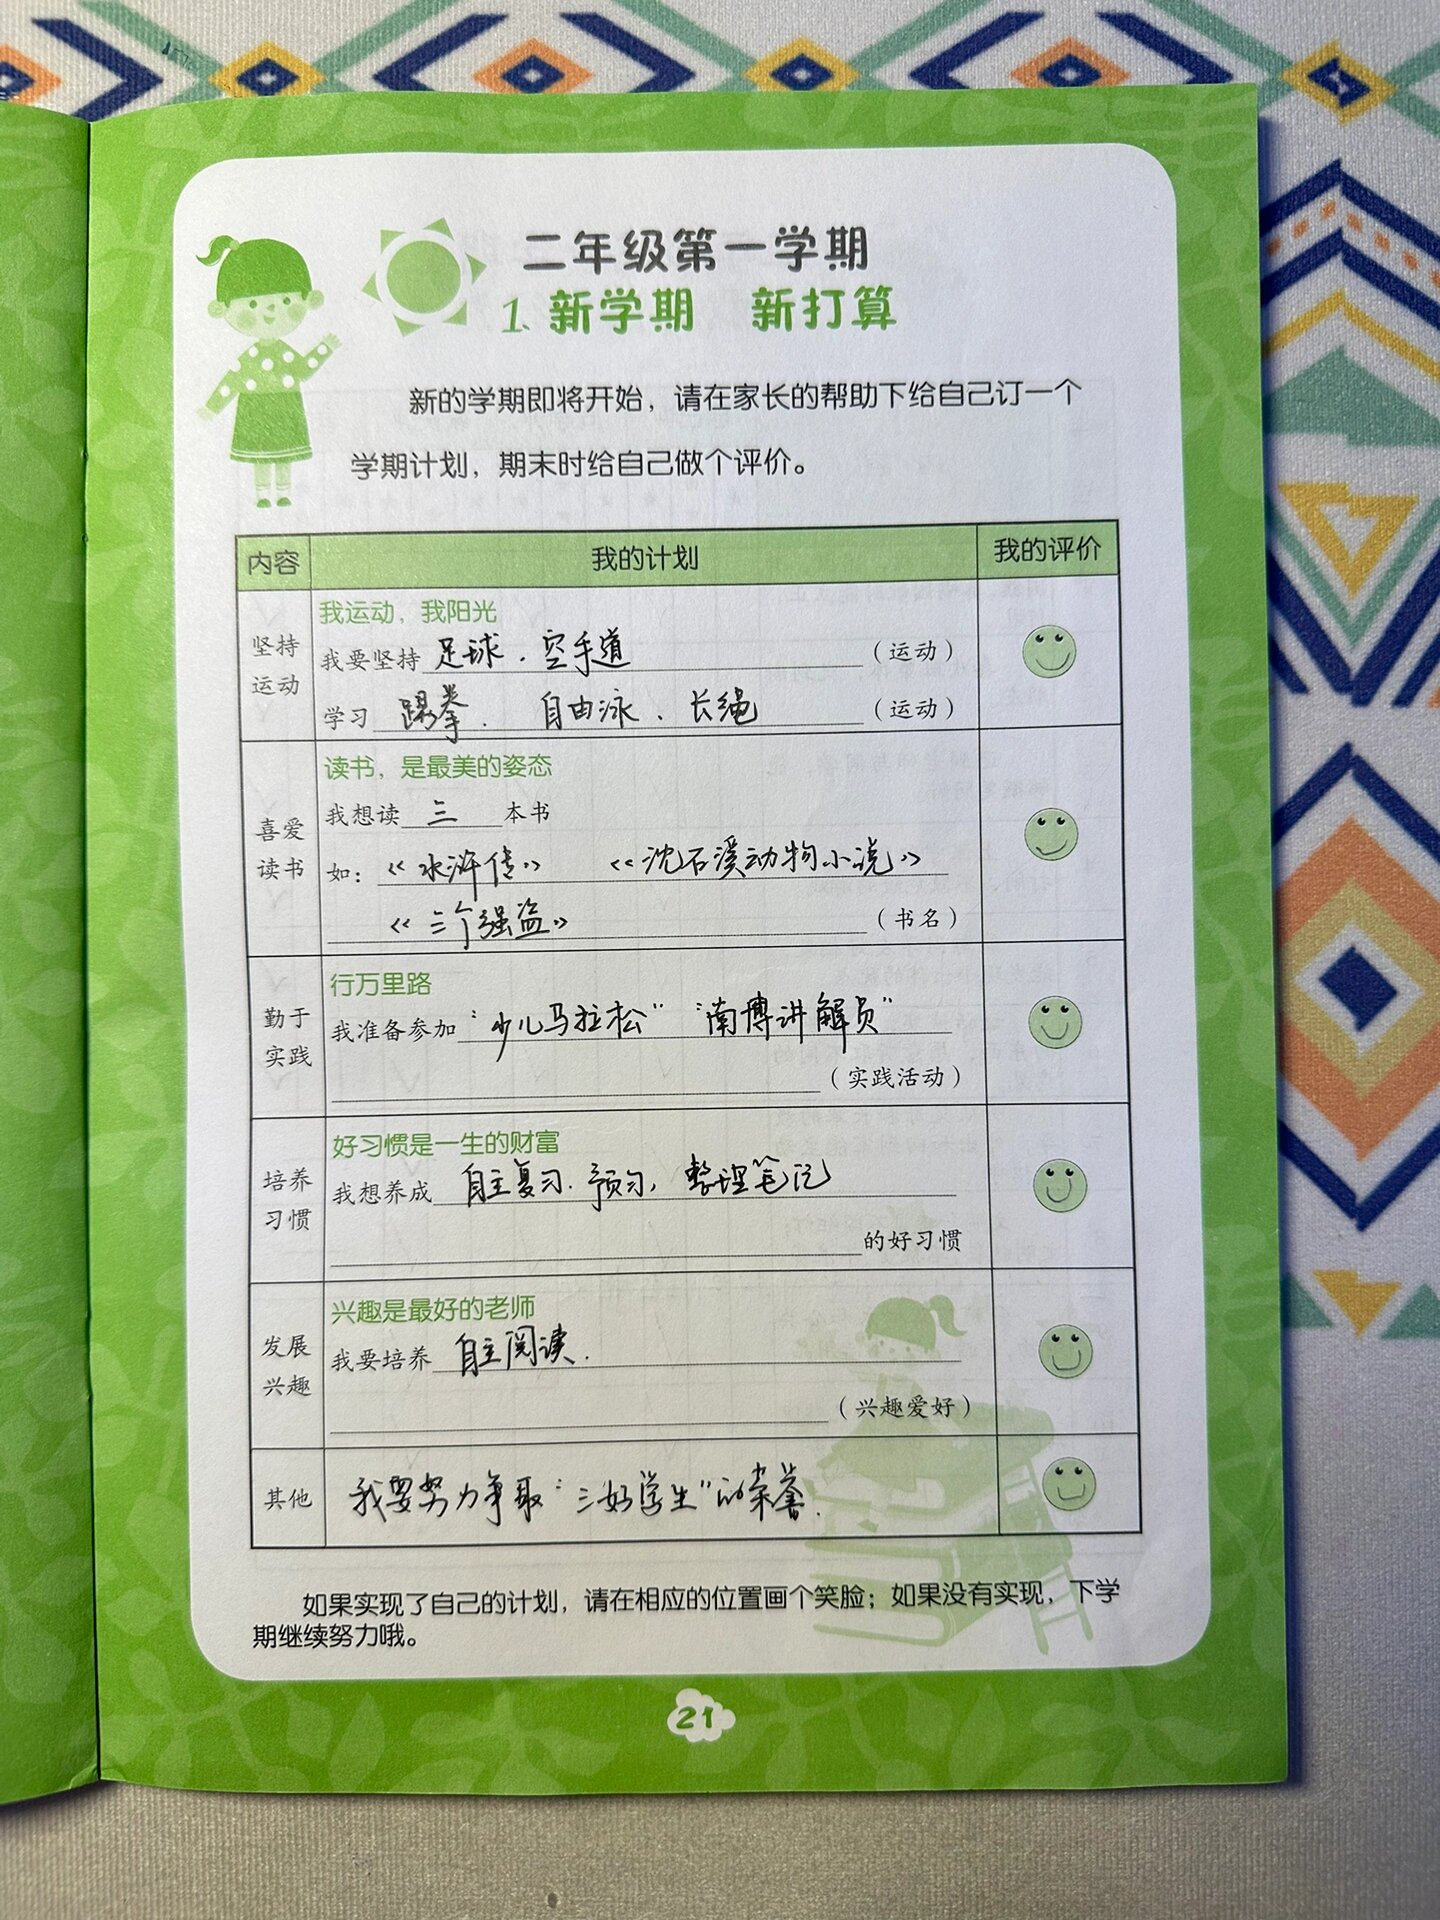 二年级第一学期
1、新学期 新打算
新的学期即将开始，请在家长的帮助下给自己订一个
学期计划，期末时给自己做个评价。
内容 我的计划 我的评价
坚持运动
我运动，我阳光
我要坚持 足球．空手道（运动）
学习 踢拳． 自由泳．长绳（运动）
喜爱读书
读书，是最美的姿态
我想读 三 本书
如：《水浒传》 《沈石溪动物小说》
《三个强盗》（书名）
勤于实践
行万里路
我准备参加“少儿马拉松”“南博讲解员”
（实践活动）
培养习惯
好习惯是一生的财富
我想养成 自主复习．预习，整理笔记
的好习惯
发展兴趣
兴趣是最好的老师
我要培养 自主阅读．
（兴趣爱好）
其他 我要努力争取“三好学生”的荣誉．
如果实现了自己的计划，请在相应的位置画个笑脸；如果没有实现，下学
期继续努力哦。
21